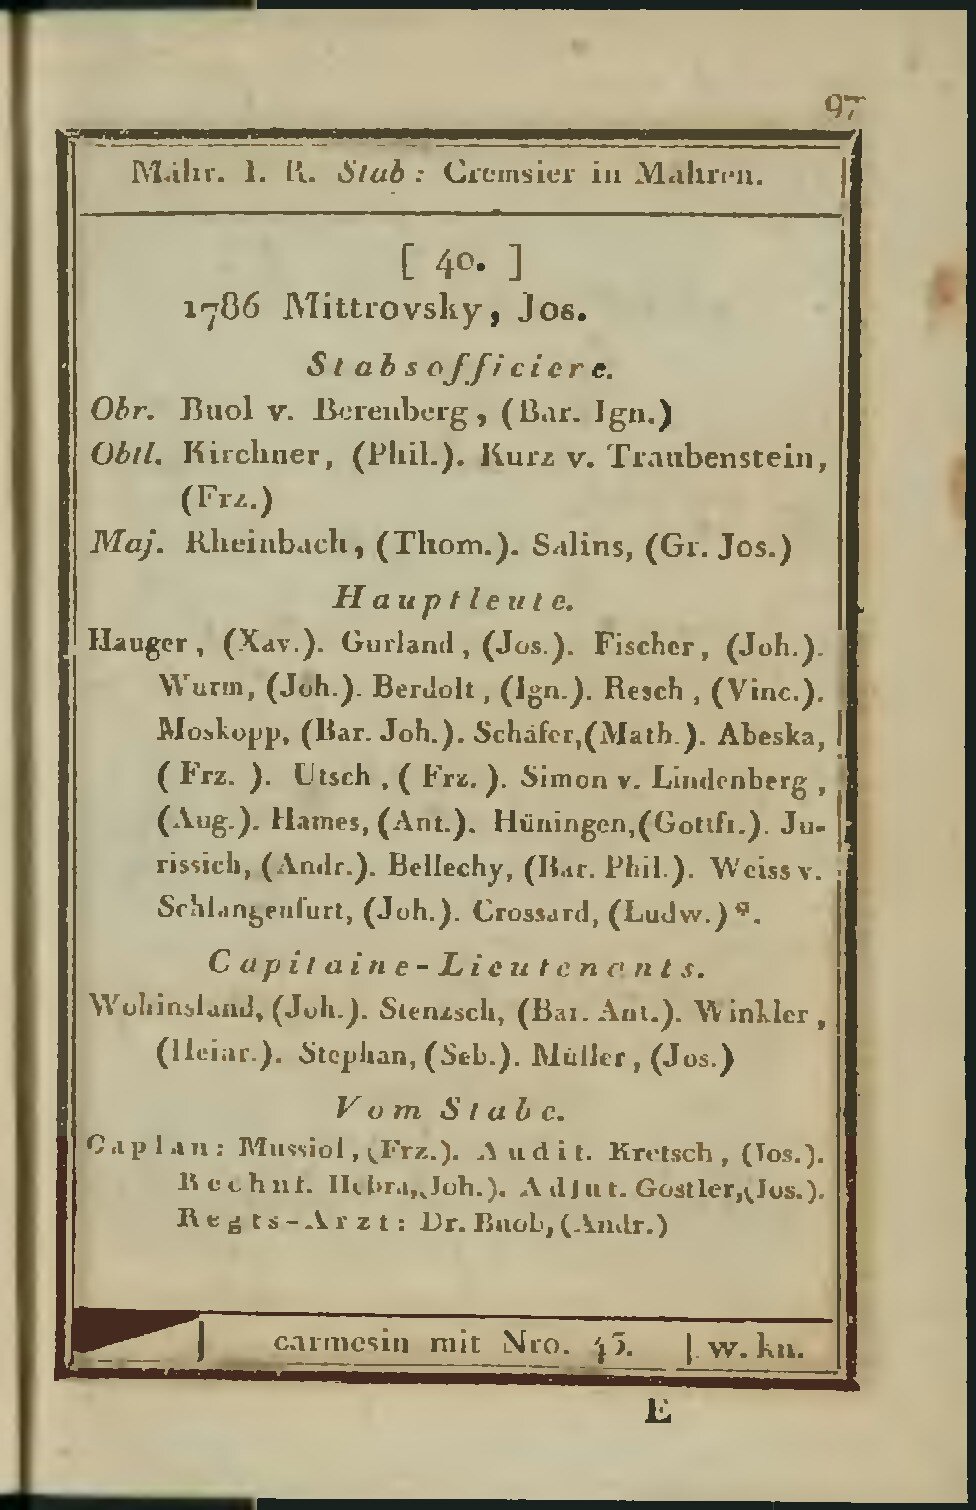 97
Mähr. I. R. Stab: Cremsier in Mahren.
[ 40. ]
1786 Mittrovsky, Jos.
Stabsofficiere.
Obr. Buol v. Berenberg, (Bar. Ign.)
Obtl. Kirchner, (Phil.). Kurz v. Traubenstein,
(Frz.)
Maj. Rheinbach, (Thom.). Salins, (Gr. Jos.)
Hauptleute.
Hauger, (Xav.). Gurland, (Jos.). Fischer, (Joh.).
Wurm, (Joh.). Berdolt, (Ign.). Resch, (Vinc.).
Moskopp, (Bar. Joh.). Schäfer, (Math.). Abeska,
(Frz.). Utsch, (Frz.). Simon v. Lindenberg,
(Aug.). Hames, (Ant.). Hüningen, (Gottfr.). Ju-
rissich, (Andr.). Bellechy, (Bar. Phil.). Weiss v.
Schlangenfurt, (Joh.). Crossard, (Ludw.)
Capitaine-Lieutenants.
Wohinsland, (Joh.). Stenzsch, (Bar. Ant.). Winkler,
(Heinr.). Stephan, (Seb.). Müller, (Jos.)
Vom Stabe.
Caplan: Mussiol, (Frz.). Audit. Kretsch, (Jos.).
Rechnf. Hebra, (Joh.). Adjut. Gostler, (Jos.).
Regts-Arzt: Dr. Buob, (Andr.)
carmesin mit Nro. 45. w. kn.
E